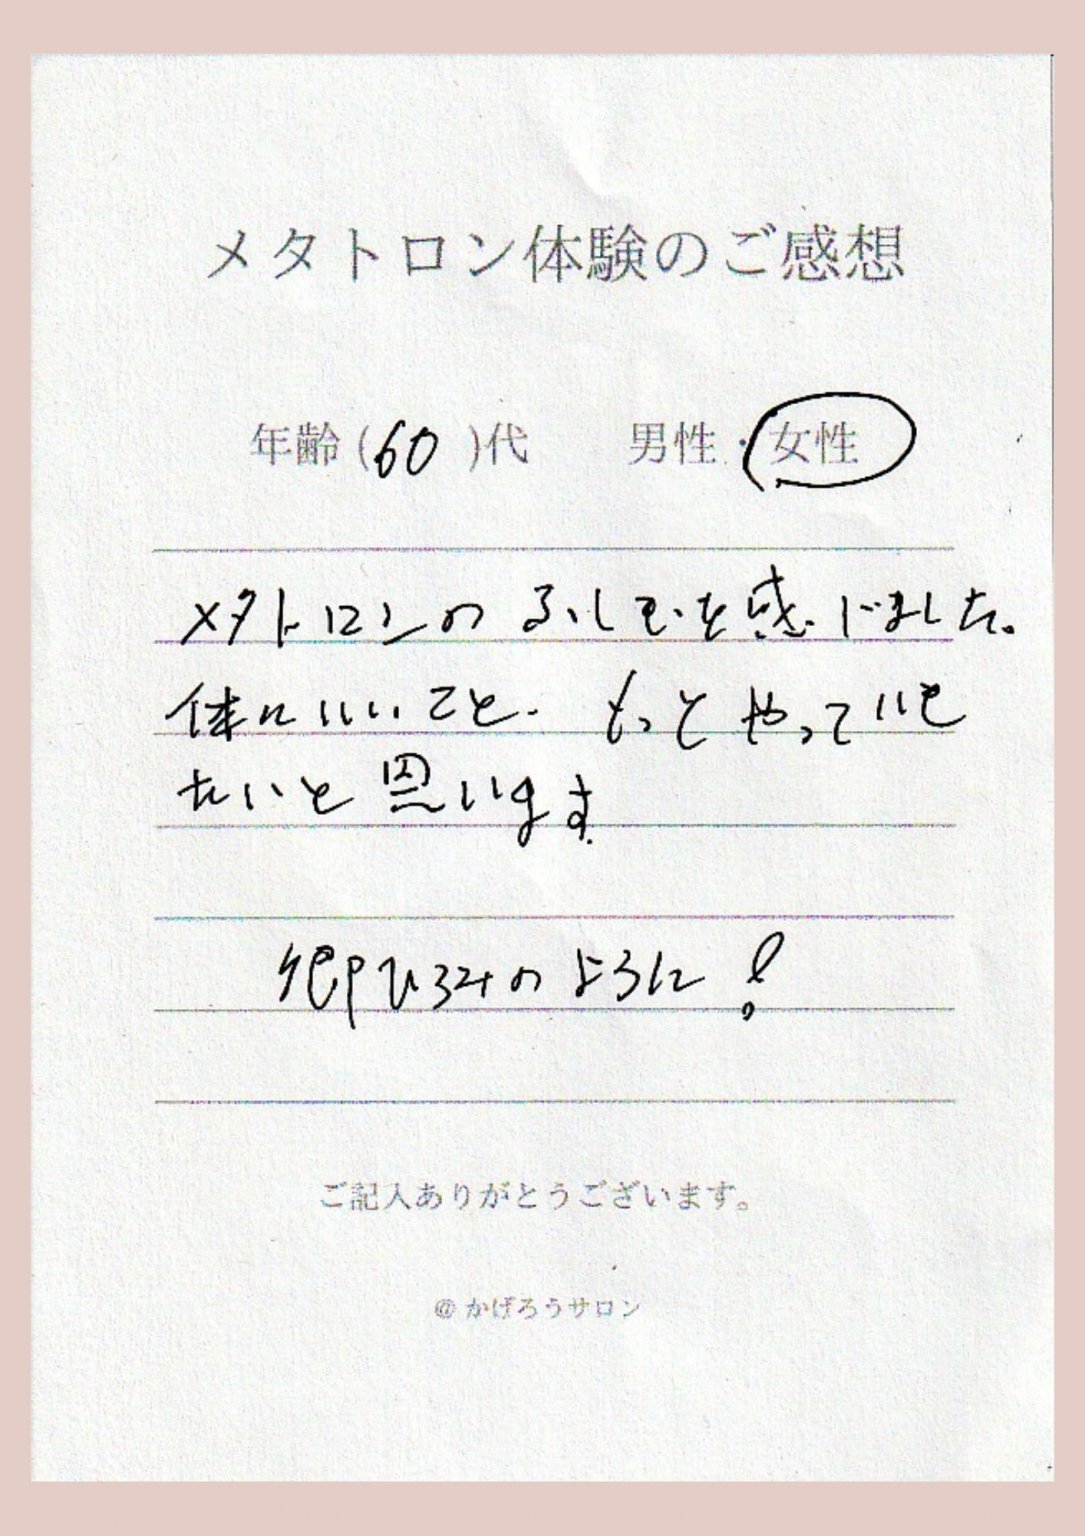 メタトロン体験のご感想
年齢(60)代 男性・女性
メタトロンのふしぎを感じました。
体にいいこと. もっとやっていき
たいと思います.
ひろみのように!
ご記入ありがとうございます。
@かげろうサロン